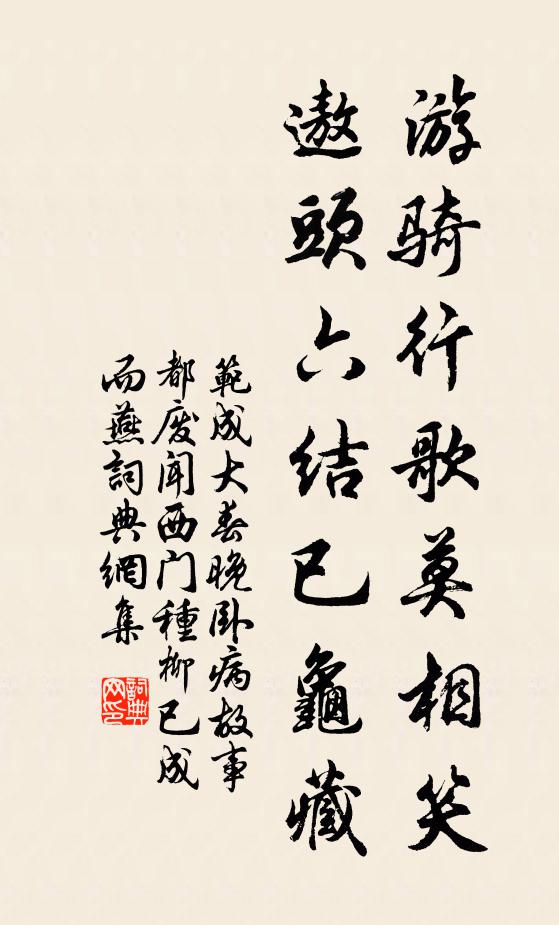 游骑行歌莫相笑
遨頭六结已龜藏
範成大春晚卧病故事
都废闻西门種柳已成
而燕詞典網集
詞典网印